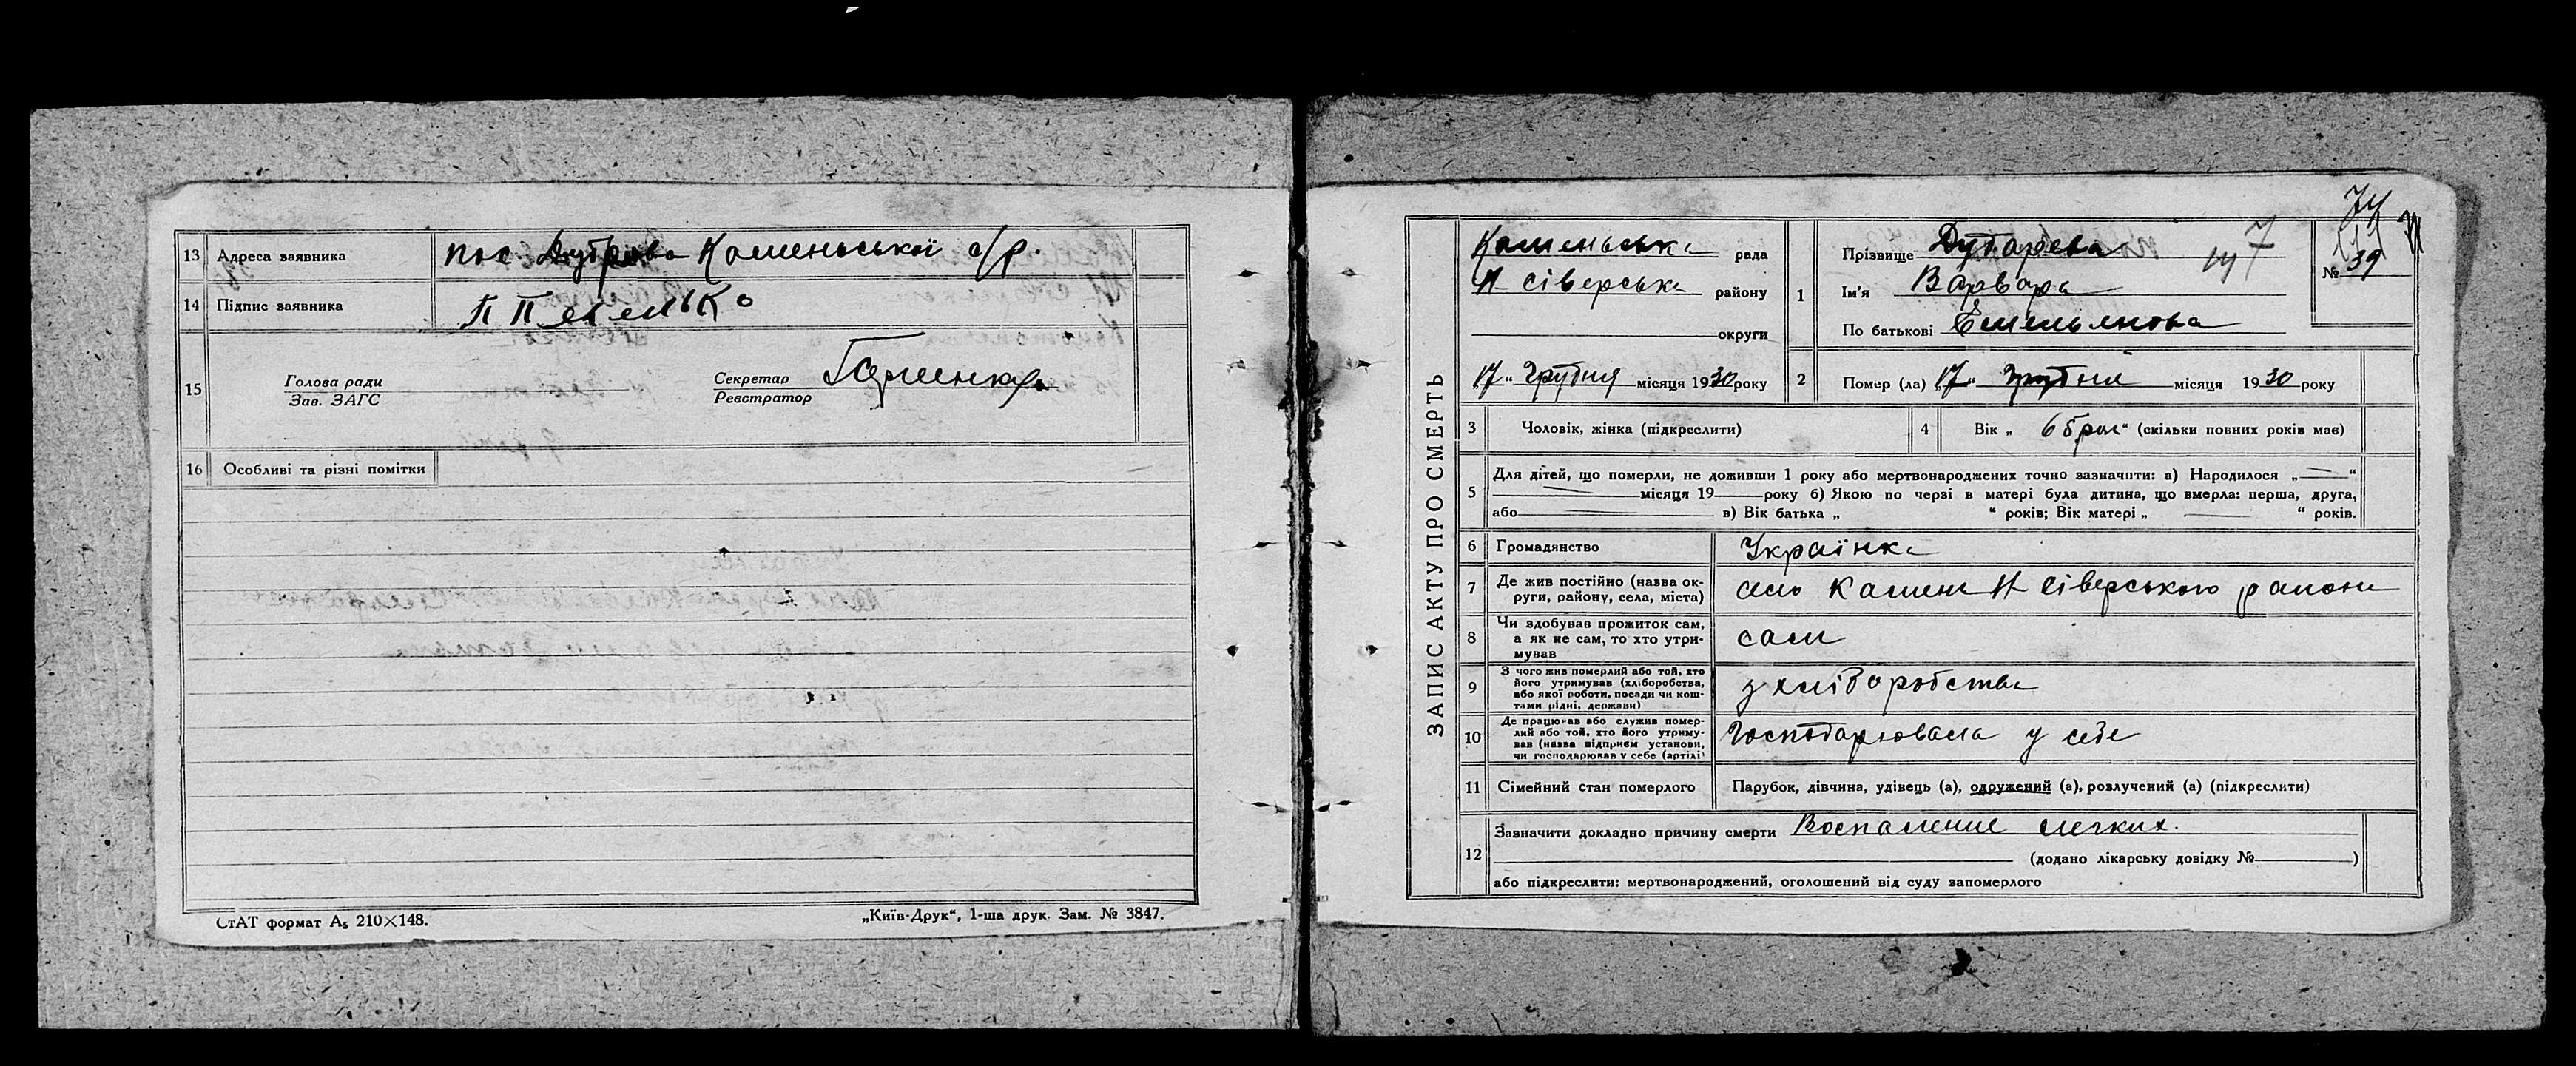 13 Адреса заявника пос Дуброва Каменьської с/р.
14 Підпис заявника П Петелько
15 Голова ради
Зав. ЗАГС
Секретар
Реєстратор
16 Особливі та різні помітки
СтАТ формат А₅ 210×148.
„Київ-Друк“, 1-ша друк. Зам. № 3847.
ЗАПИС АКТУ ПРО СМЕРТЬ
Каменьська рада
Н Сіверська району
округи
„17“ Грудня місяця 1930 року
1 Прізвище Дударева
Ім'я Варвара
По батькові Емельянова
№ 39
2 Помер (ла) „17“ Грудня місяця 1930 року
3 Чоловік, жінка (підкреслити)
4 Вік „ “ (скільки повних років має)
5 Для дітей, що померли, не доживши 1 року або мертвонароджених точно зазначити: а) Народилося „—“
місяця 19 року б) Якою по черзі в матері була дитина, що вмерла: перша, друга,
або в) Вік батька „ “ років; Вік матері „ “ років.
6 Громадянство Українка
7 Де жив постійно (назва ок-
руги, району, села, міста) село Камень Н Сіверського району
8 Чи здобував прожиток сам,
а як не сам, то хто утри-
мував сам
9 З чого жив померлий або той, хто
його утримував (хліборобства,
або якої роботи, посади чи кош-
тами рідні, держави) з хліборобства
10 Де працював або служив помер-
лий або той, хто його утриму-
вав (назва підприєм установи,
чи господарював у себе (артілі) Господарювала у себе
11 Сімейний стан померлого Парубок, дівчина, удівець (а), одружений (а), розлучений (а) (підкреслити)
12 Зазначити докладно причину смерти Воспаление легких.
(додано лікарську довідку № )
або підкреслити: мертвонароджений, оголошений від суду запомерлого